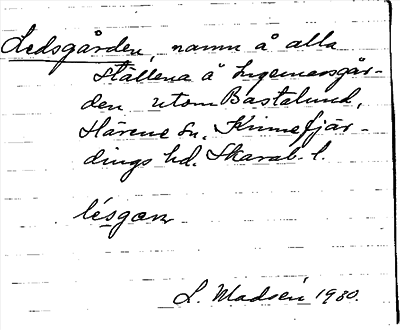 Ledsgården, namn å alla
ställena å Ingemarsgår-
den utom Bastalund,
Härene Sn. Kinnefjär-
dings hd. Skarab. l.
lésgaɳ
L. Madsén 1930.